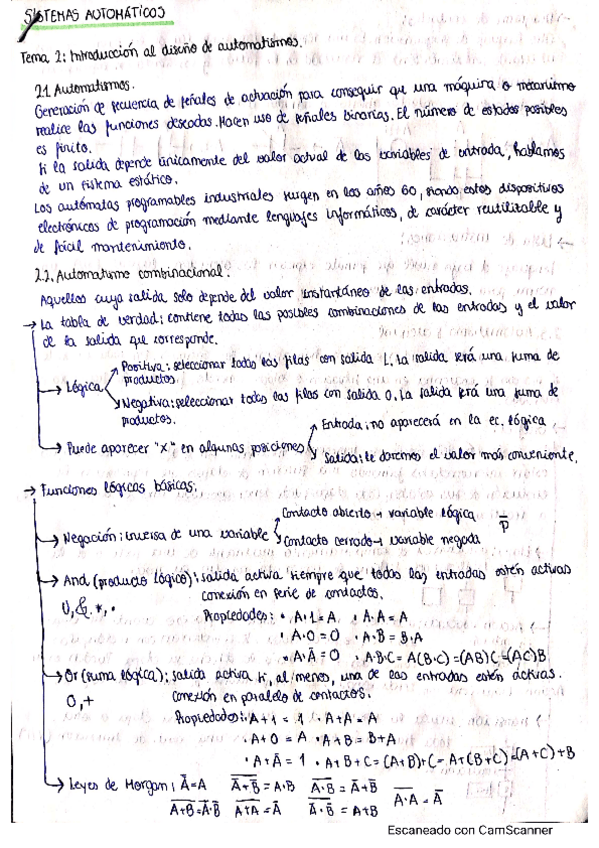 SISTEMAS AUTOMÁTICOS
Tema 2: Introducción al diseño de automatismos.
2.1 Automatismos.
Generación de secuencia de señales de actuación para conseguir que una máquina o mecanismo
realice las funciones deseadas. Hacen uso de señales binarias. El número de estados posibles
es finito.
Si la salida depende únicamente del valor actual de las variables de entrada, hablamos
de un sistema estático.
Los autómatas programables industriales surgen en los años 60, siendo estos dispositivos
electrónicos de programación mediante lenguajes informáticos, de carácter reutilizable y
de fácil mantenimiento.
2.2. Automatismo combinacional.
Aquellos cuya salida solo depende del valor instantáneo de las entradas.
→ La tabla de verdad: contiene todas las posibles combinaciones de las entradas y el valor
de la salida que corresponde.
→ Lógica
Positiva: seleccionar todas las filas con salida 1. La salida será una suma de
productos.
Negativa: seleccionar todas las filas con salida 0. La salida será una suma de
productos.
→ Puede aparecer "x" en algunas posiciones
Entrada: no aparecerá en la ec. lógica
Salida: le daremos el valor más conveniente.
→ Funciones lógicas básicas:
→ Negación: inversa de una variable
Contacto abierto → variable lógica
Contacto cerrado → variable negada
p̅
→ And (producto lógico): salida activa siempre que todas las entradas estén activas
conexión en serie de contactos.
&, *, ·
Propiedades: • A·1=A • A·A=A
• A·0=0 • A·B=B·A
• A·A̅=0 • A·B·C=A(B·C)=(AB)C=(AC)B
→ Or (suma lógica): salida activa si, al menos, una de las entradas estén activas.
Conexión en paralelo de contactos.
O,+
Propiedades: • A+1=1 • A+A=A
• A+0=A • A+B=B+A
• A+A̅=1 • A+B+C=(A+B)+C=A+(B+C)=(A+C)+B
→ Leyes de Morgan:
Escaneado con CamScanner